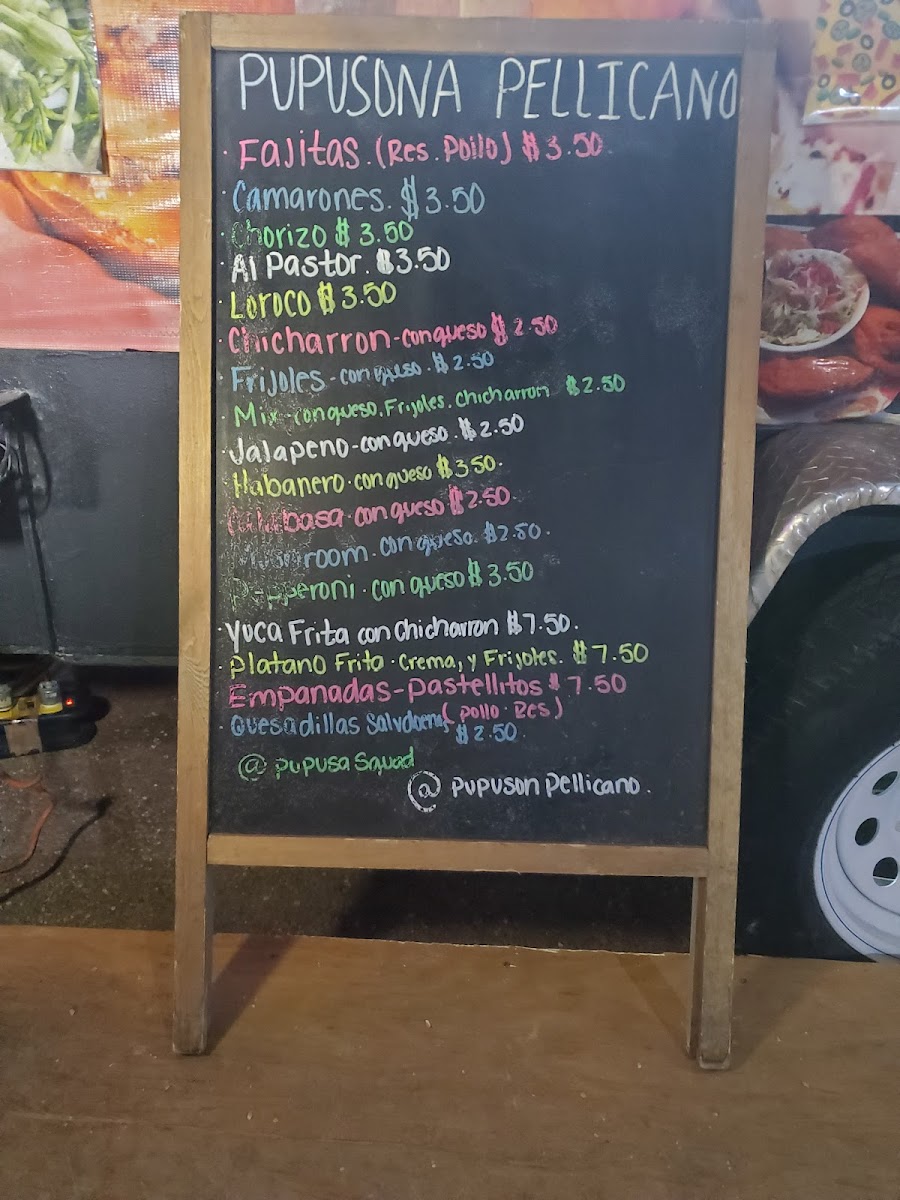 PUPUSONA PELLICANO
· Fajitas. (Res. Pollo) $3.50
Camarones. $3.50
· Chorizo $3.50
· Al Pastor. $3.50
· Loroco $3.50
· Chicharron-conqueso $2.50
· Frijoles-con queso. $2.50
· Mix-conqueso. Frijoles. chicharron $2.50
· Jalapeno-conqueso. $2.50
· Habanero·conqueso $3.50.
Calabasa·con queso $2.50
Mushroom·con queso. $2.50.
Pepperoni·con queso $3.50
· Yuca Frita con chicharron $7.50.
· Platano Frito·Crema, y Frijoles. $7.50
Empanadas-Pastellitos $7.50
(pollo·Res)
· Quesadillas $2.50
@ pupusa Squad
@ pupuson pellicano.